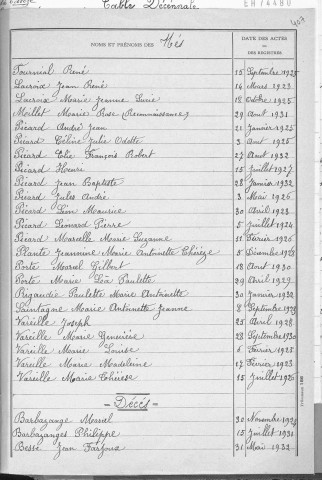 Table Décennale
407
NOMS ET PRÉNOMS DES Nés
DATE DES ACTES
ou
DES REGISTRES
Tournial René 15 Septembre 1925
Lacroix Jean René 14 Mars 1923
Lacroix Marie Jeanne 18 Octobre 1925
Meillet Marie Rose (Reconnaissance) 29 Août 1931
Picard André Jean 21 Janvier 1925
Picard Céline Julie Odette 3 Août 1925
Picard Elie François Robert 27 Août 1932
Picard Henri 15 Juillet 1927
Picard Jean Baptiste 28 Janvier 1932
Picard Jules André 3 Mai 1926
Picard Léon Maurice 30 Avril 1923
Picard Léonard Pierre 5 Juillet 1924
Picard Marcelle Marie Suzanne 11 Février 1926
Plante Jeannine Marie Antoinette Thérèze 8 Décembre
Porte Marcel Gilbert 18 Août 1930
Porte Maria Léa Paulette 29 Avril 1929
Rigaudie Paulette Marie Antoinette 30 Janvier
Saintagne Marie Antoinette Jeanne 8 Septembre
Vareille Joseph 25 Avril 1928
Vareille Marie Geneviève 28 Septembre 1930
Vareille Marie Louise 6 Février 1925
Vareille Marie Madeleine 17 Février 1923
Vareille Maria Thérèse 15 Juillet 1926
Décès
Barbazange Marcel 30 Novembre
Barbazanges Philippe 15 Juillet 1931
Besse Jean 31 Mai 1932